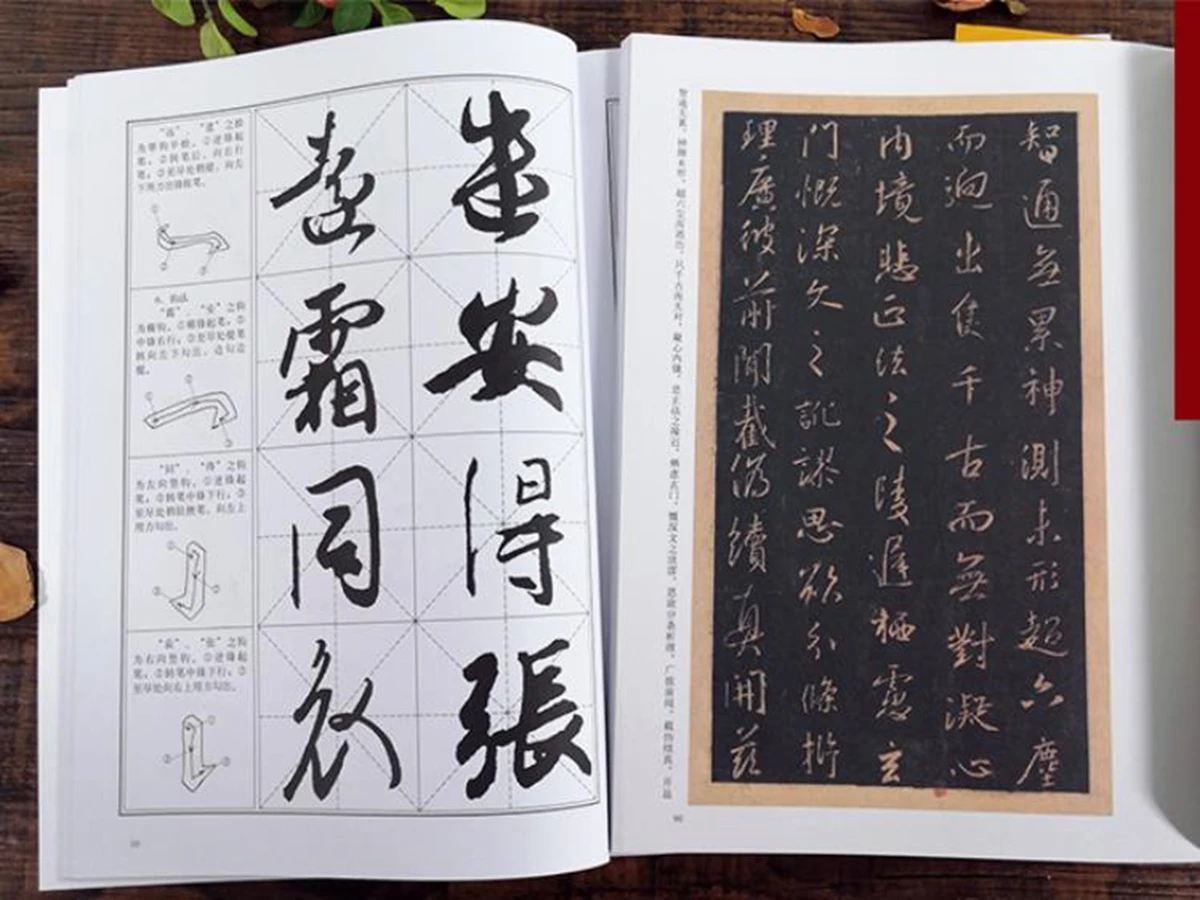 为带钩平捺。①逆锋起
笔。②转笔后，向右行
笔。③至尽处稍提，向左
下用力出锋收笔。
8. 钩法
“霜”、“安”之钩
为横钩。①横锋起笔。②
中锋右行。③至尽处提笔
转向左下勾出，边勾边
提。
为左向竖钩。①逆锋起
笔。②转笔中锋下行。③
向左上
用力勾出。
为右向竖钩。①逆锋起
笔。②转笔中锋下行。③
至尽处向右上用力勾出。
安得張
遠霜同衣
智通無累神測未形超六塵
而迥出隻千古而無對凝心
内境悲正法之陵遲栖慮玄
门慨深文之訛謬思欲分條析
理廣彼前聞截偽續真開茲
智通无累，神测未形，超六尘而迥出，只千古而无对。凝心内境，悲正法之陵迟；栖虑玄门，慨深文之讹谬。思欲分条析理，广彼前闻，截伪续真，开兹